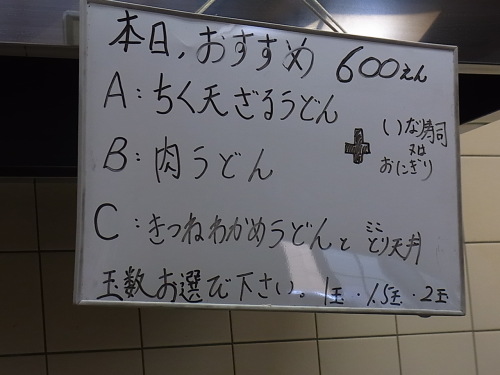 本日、おすすめ 600えん
A:ちく天ざるうどん
B:肉うどん
+ いな寿司
又は
おにぎり
C:きつねわかめうどんと ミニとり天丼
玉数お選び下さい。1玉・1.5玉・2玉